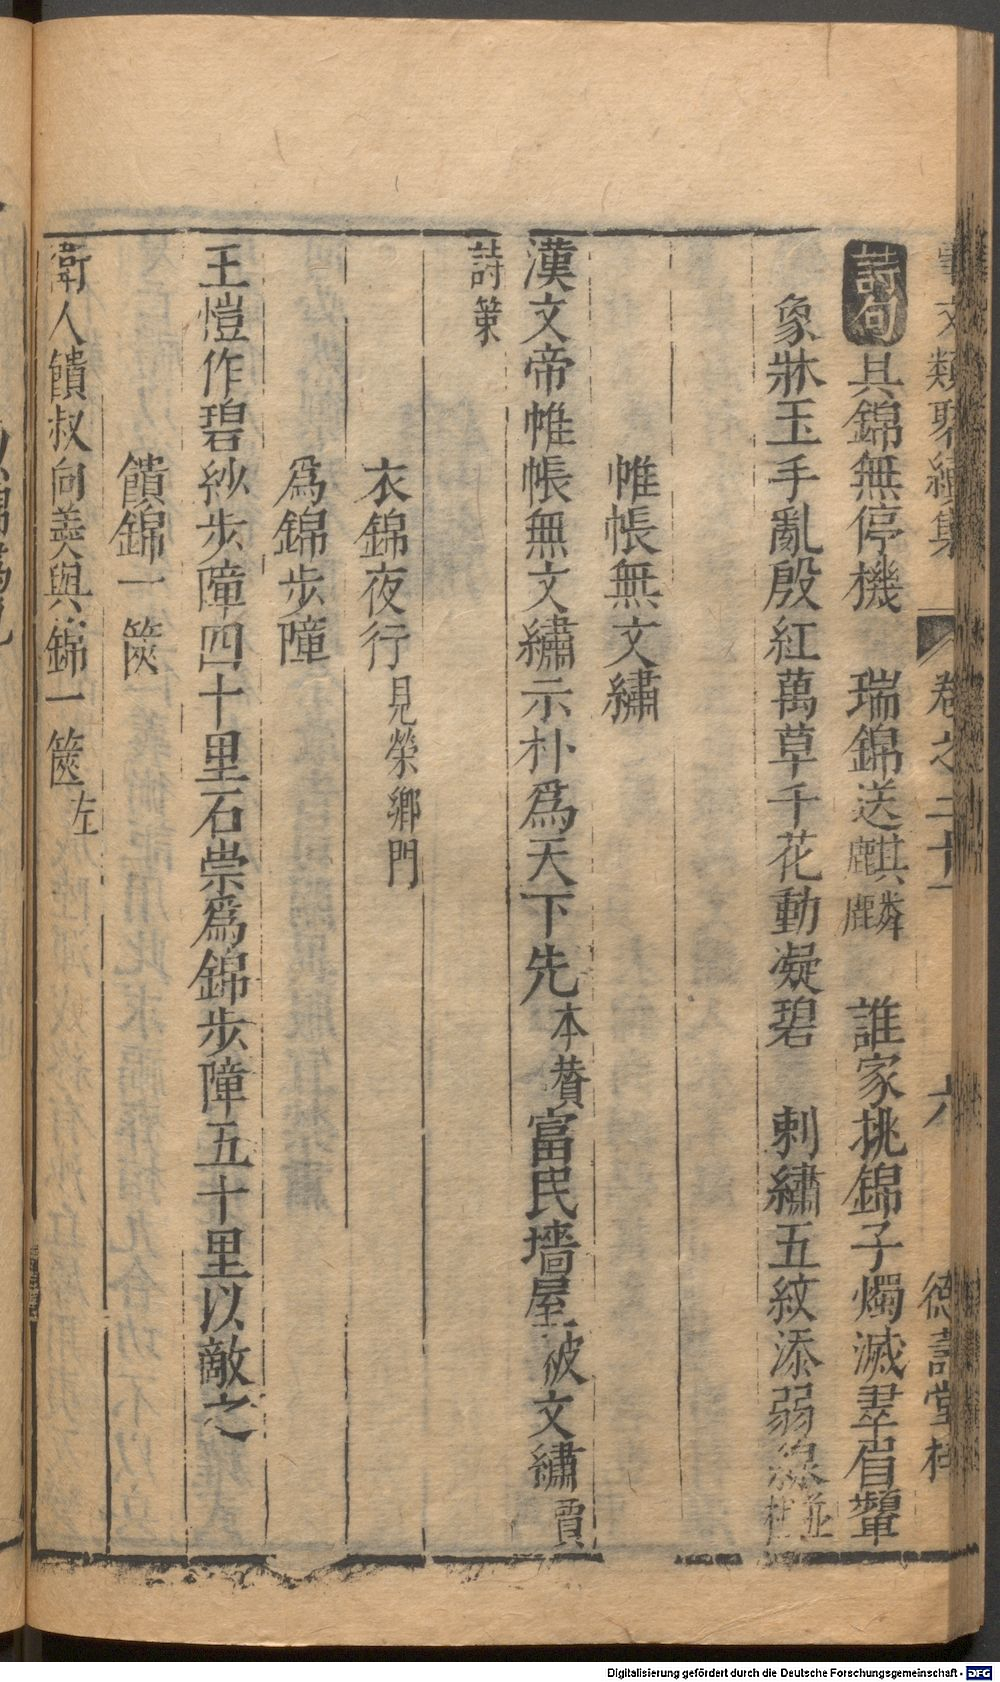 事文類聚續集 卷之二十一 六 德壽堂梓
詩句 具錦無停機 瑞錦送麒麟 誰家挑錦子燭滅翠眉顰
象牀玉手亂殷紅萬草千花動凝碧 刺繡五紋添弱線並杜
帷帳無文繡
漢文帝帷帳無文繡示朴爲天下先本賛富民墻屋被文繡賈
詩策
衣錦夜行見榮鄉門
爲錦步障
王愷作碧紗步障四十里石崇爲錦步障五十里以敵之
饋錦一篋
衛人饋叔向羹與錦一篋左
Digitalisierung gefördert durch die Deutsche Forschungsgemeinschaft - DFG